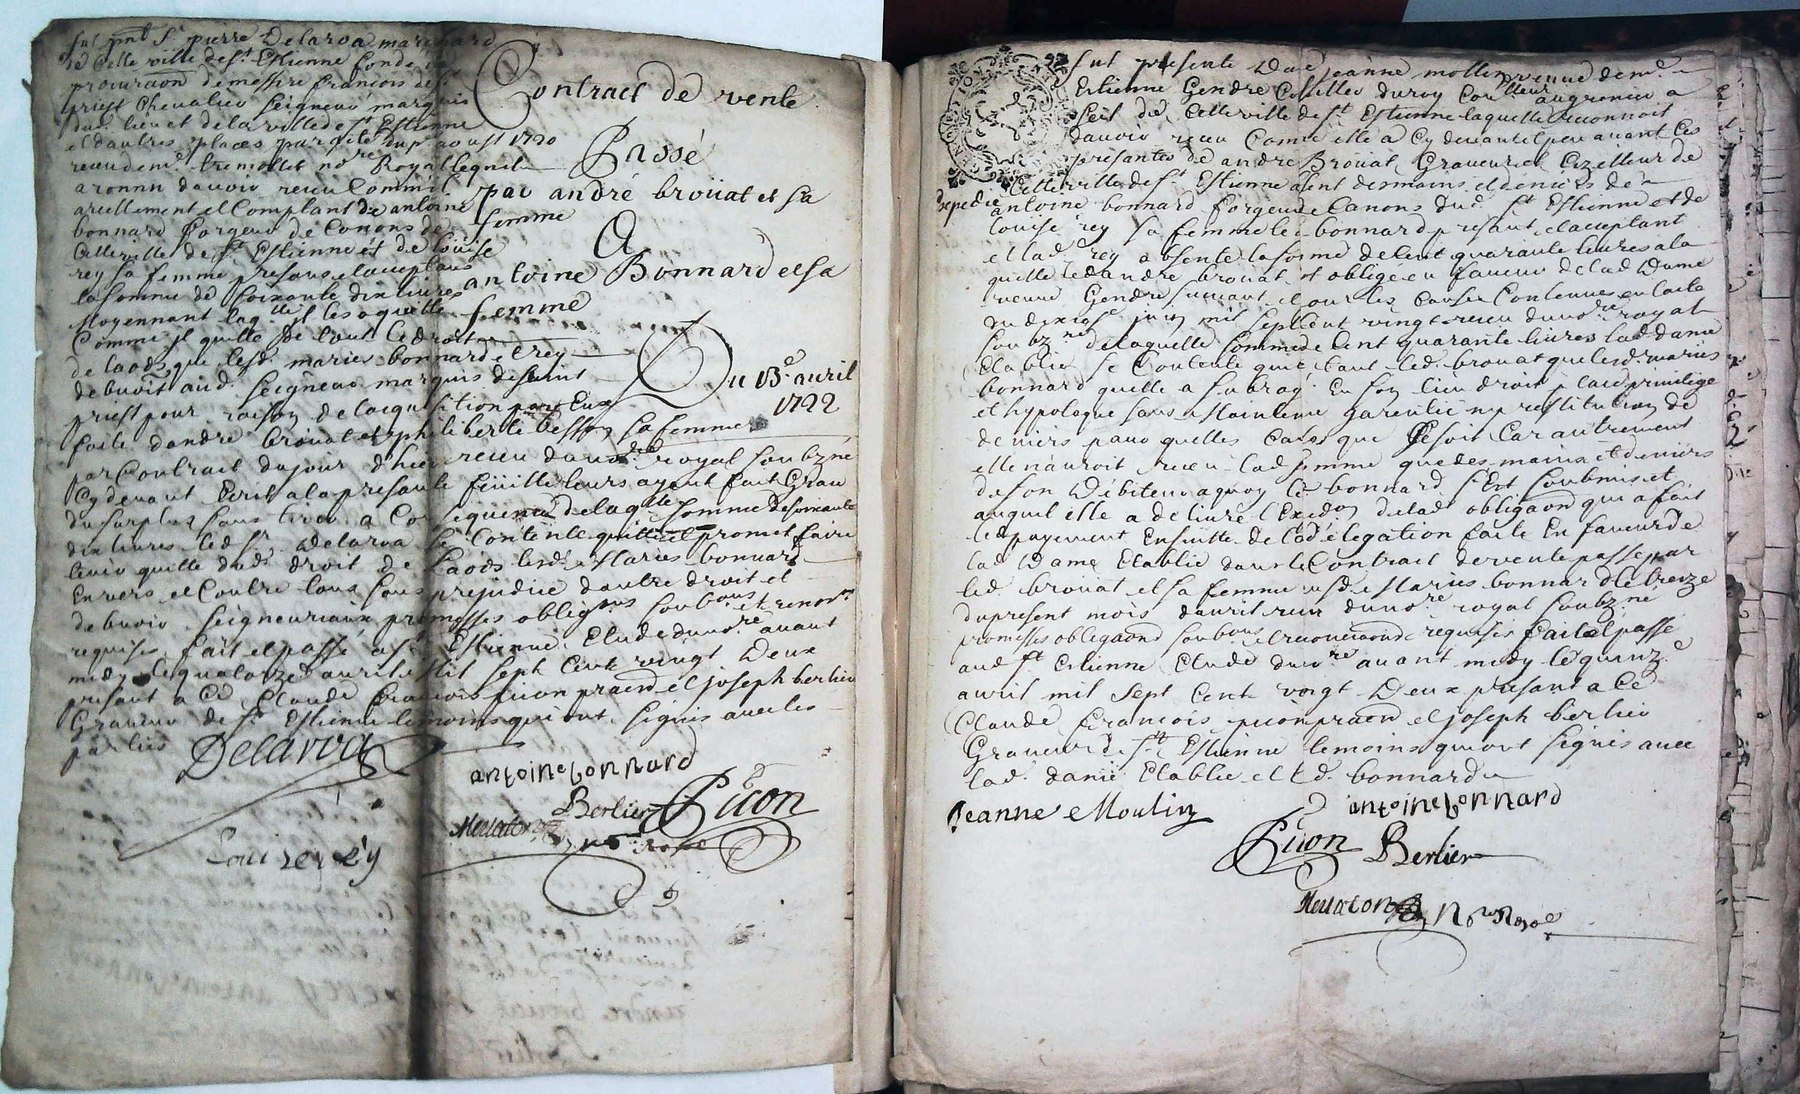 fut pnt Sr pierre Delaroa marchand
de cette ville de St Estienne fondé de
procuraon de messire francois de St
priest chevalier seigneur marquis
dud. lieu et de la ville de St Estienne
et dautres places par acte du aoust 1720
receu de me tremollet nore Royal lequel
a reconnu davoir receu comme
actuellement et comptant de antoine
bonnard forgeur de Canons de
cette ville de St Estienne et de Louise
rey sa femme presans et acceptans
la somme de soixante dix livres
Moyennant laqlle il les a quitté
Comme jl quitte de tout le droit
de laods que lesd. maries bonnard et rey
debvoit aud. seigneur marquis de saint
priest pour raison de lacquisition par Eux
faite dandré broüat et philiberte besson sa femme
par Contrait du jour d'hier receu du nore royal soubzné
Cy devant Ecrit a la presante feüille leurs ayant fait Grace
du surplus sans tirer a Consequence de laqlle somme de soixante
dix livres led. Sr Delaroa se Contente quitte et promet faire
tenir quitte dud. droit de Laods lesd. Maries bonnard
Envers et Contre tous sans prejudice dautre droit et
debvoir seigneuriaux promesses obligons soubons et renonns
requises fait et passé a St Estienne Etude du nore avant
midy le quatorze avril Mil sept cent vingt Deux
presant a ce Claude francois picon praen et joseph berlier
Graveur de St Estienne temoins qui ont signés avec les
parties
Delaroa
antoine bonnard
Berlier Picon
Louise rey
Contract de vente
Passé
par andré broüat et sa
femme
A
antoine Bonnard et sa
femme
Du 13e avril
1722
fut presente Dae jeanne mollin veuve de me
Estienne Gendre Coniller du roy Controlleur au grenier a
sel de cette ville de St Estienne laquelle reconnoit
davoir receu Comme elle a Cy devant et peu avant Ces
presantes de andré Broüat Graveur et Cizelleur de
Cette ville de St Estienne aient des mains et deniers de
Expedié
antoine bonnard forgeur de Canons dud. St Estienne et de
louise rey sa femme led. bonnard presant et acceptant
et lad. rey absente la somme de Cent quarante livres a la
quelle led. andré broüat est obligé en faveur de lad. Dame
veuve Gendre suivant et pour les Causes Contenues en lacte
du dix juin mil sept Cent vingt receu du nore royal
soubzne de laquelle somme de Cent quarante livres lad. dame
Etablie se Contente quitte tant led. brouat que lesd. maries
bonnard quelle a subrogé En son lieu droit place privilege
et hypoteque sans Maintenue garentie ny restitution de
deniers pour quelles Cause que Ce soit Car autrement
elle n'auroit receu lad. somme que des mains et deniers
de son Débiteur a quoy led. bonnard s'Est soubmis et
auquel elle a delivré lExedon de lad. obligaon qui a fait
le payement Ensuitte de la délegation faite En faveur de
lad. Dame Etablie dans le Contrait de vente passé par
led. brouat et sa femme ausd. Maries bonnard le treize
du present mois d'avril receu du nore royal soubz.né
promesses obligaons soubons et renonciaons requises fait et passé
aud. St Estienne Etude du nore avant midy le quinze
avril mil sept Cent vingt Deux presant a Ce
Claude francois picon praen et joseph berlier
Graveur de St Estienne temoins qui ont signés avec
lad. dame Etablie et led. bonnard
Jeanne Moulin
antoine bonnard
Picon Berlier